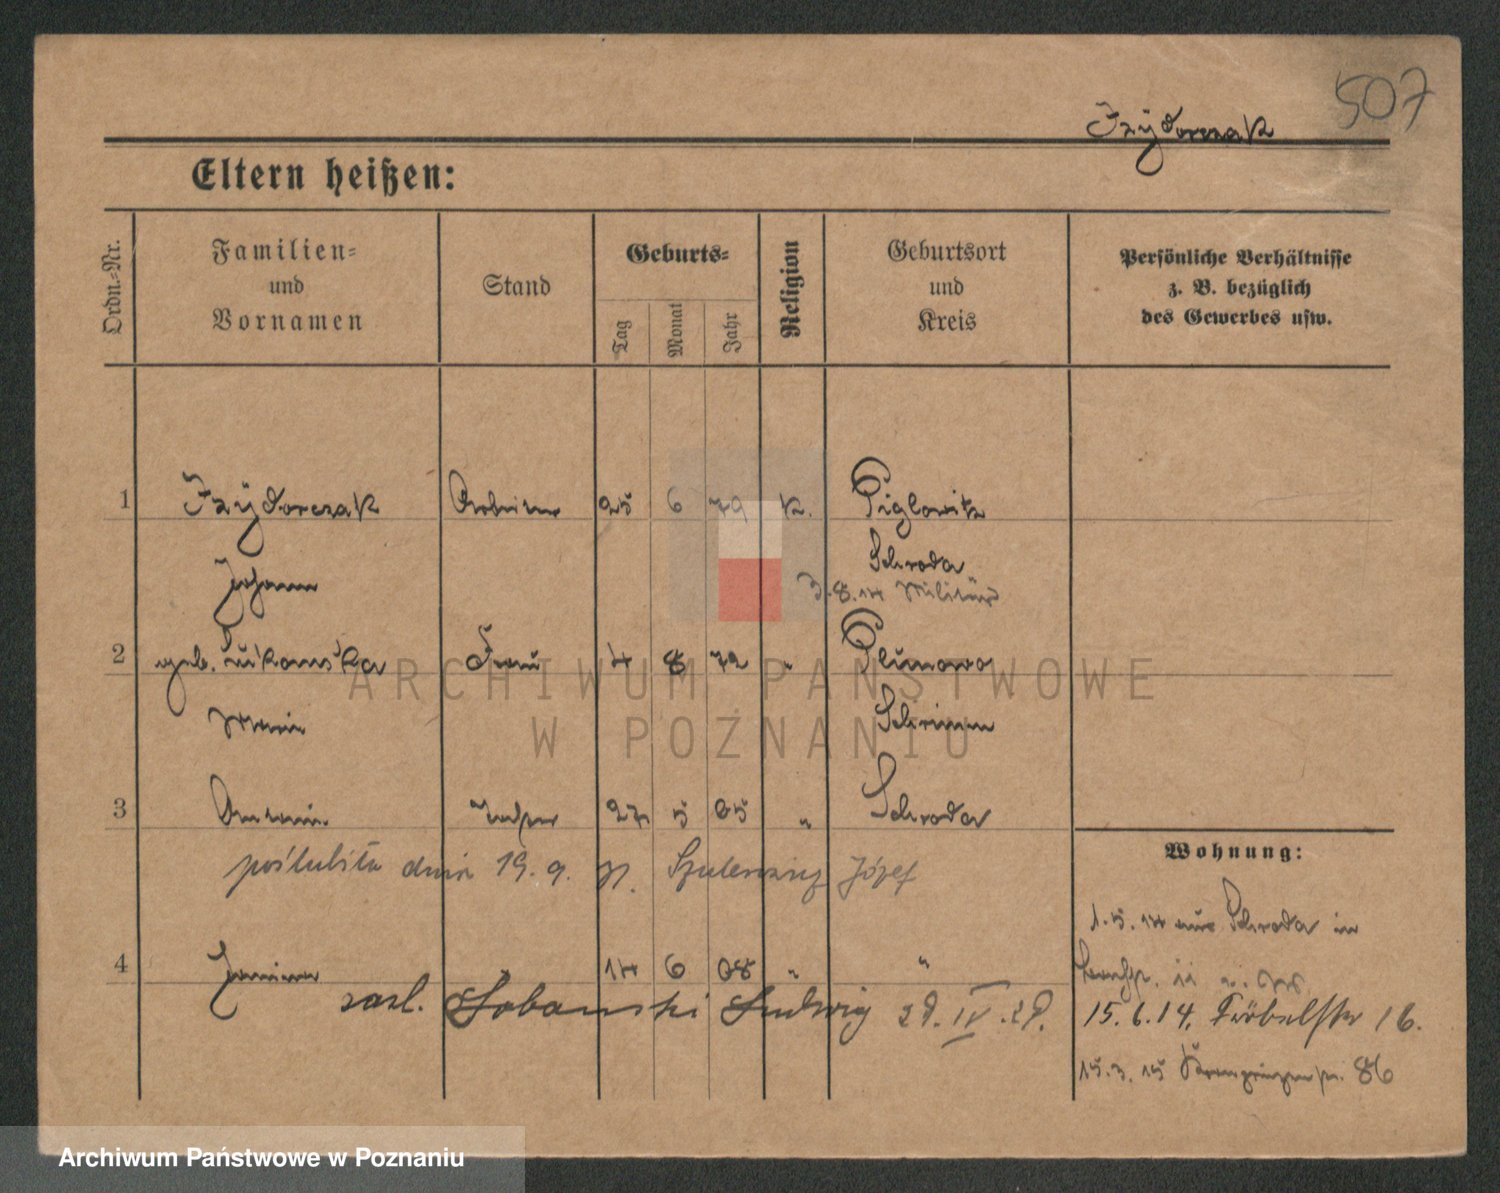 507
Izydorczak
Eltern heißen:
Ordn.-Nr.
Familien-
und
Vornamen
Stand
Geburts-
Tag
Monat
Jahr
Religion
Geburtsort
und
Kreis
Persönliche Verhältnisse
z. B. bezüglich
des Gewerbes usw.
1 Izydorczak Arbeiter 25 6 79 k. Piglowitz
Johann Schroda
3.8.14 Militär
2 geb. Frau 4 8 72 "
Maria Schrimm
3 27 5 05 " Schroda
poślubiła dnia 19. 9. Józef
Wohnung:
1.5.14 aus Schroda in
4 Janina 14 6 08 " "
zaśl. Łobanski Ludwig 28. IV. 28.
15.6.14. Fröbelstr 16.
15.3.15 Kronprinzenstr. 86
ARCHIWUM PAŃSTWOWE
W POZNANIU
Archiwum Państwowe w Poznaniu